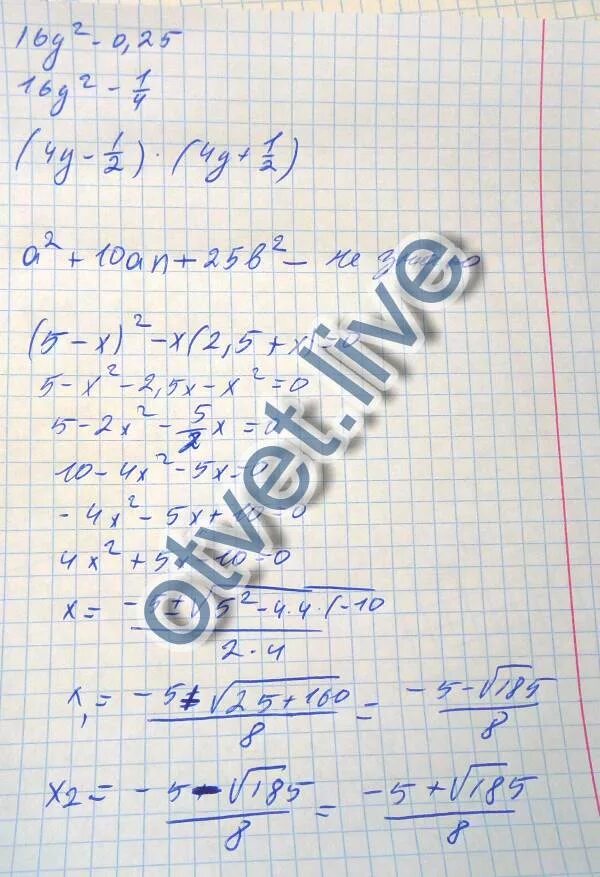 16y² - 0,25
16y² - 1/4
(4y - 1/2) · (4y + 1/2)
a² + 10an + 25b² - не
(5 - x)² - x(2,5 + x) = 0
5 - x² - 2,5x - x² = 0
5 - 2x² - 5/2 x = 0
10 - 4x² - 5x = 0
- 4x² - 5x + 10 = 0
4x² + 5x - 10 = 0
x = (-5 ± √5² - 4·4·(-10) / 2·4
x₁ = -5 ± √25 + 160 / 8 = -5 - √185 / 8
x2 = -5 - √185 / 8 = -5 + √185 / 8
otvet.live